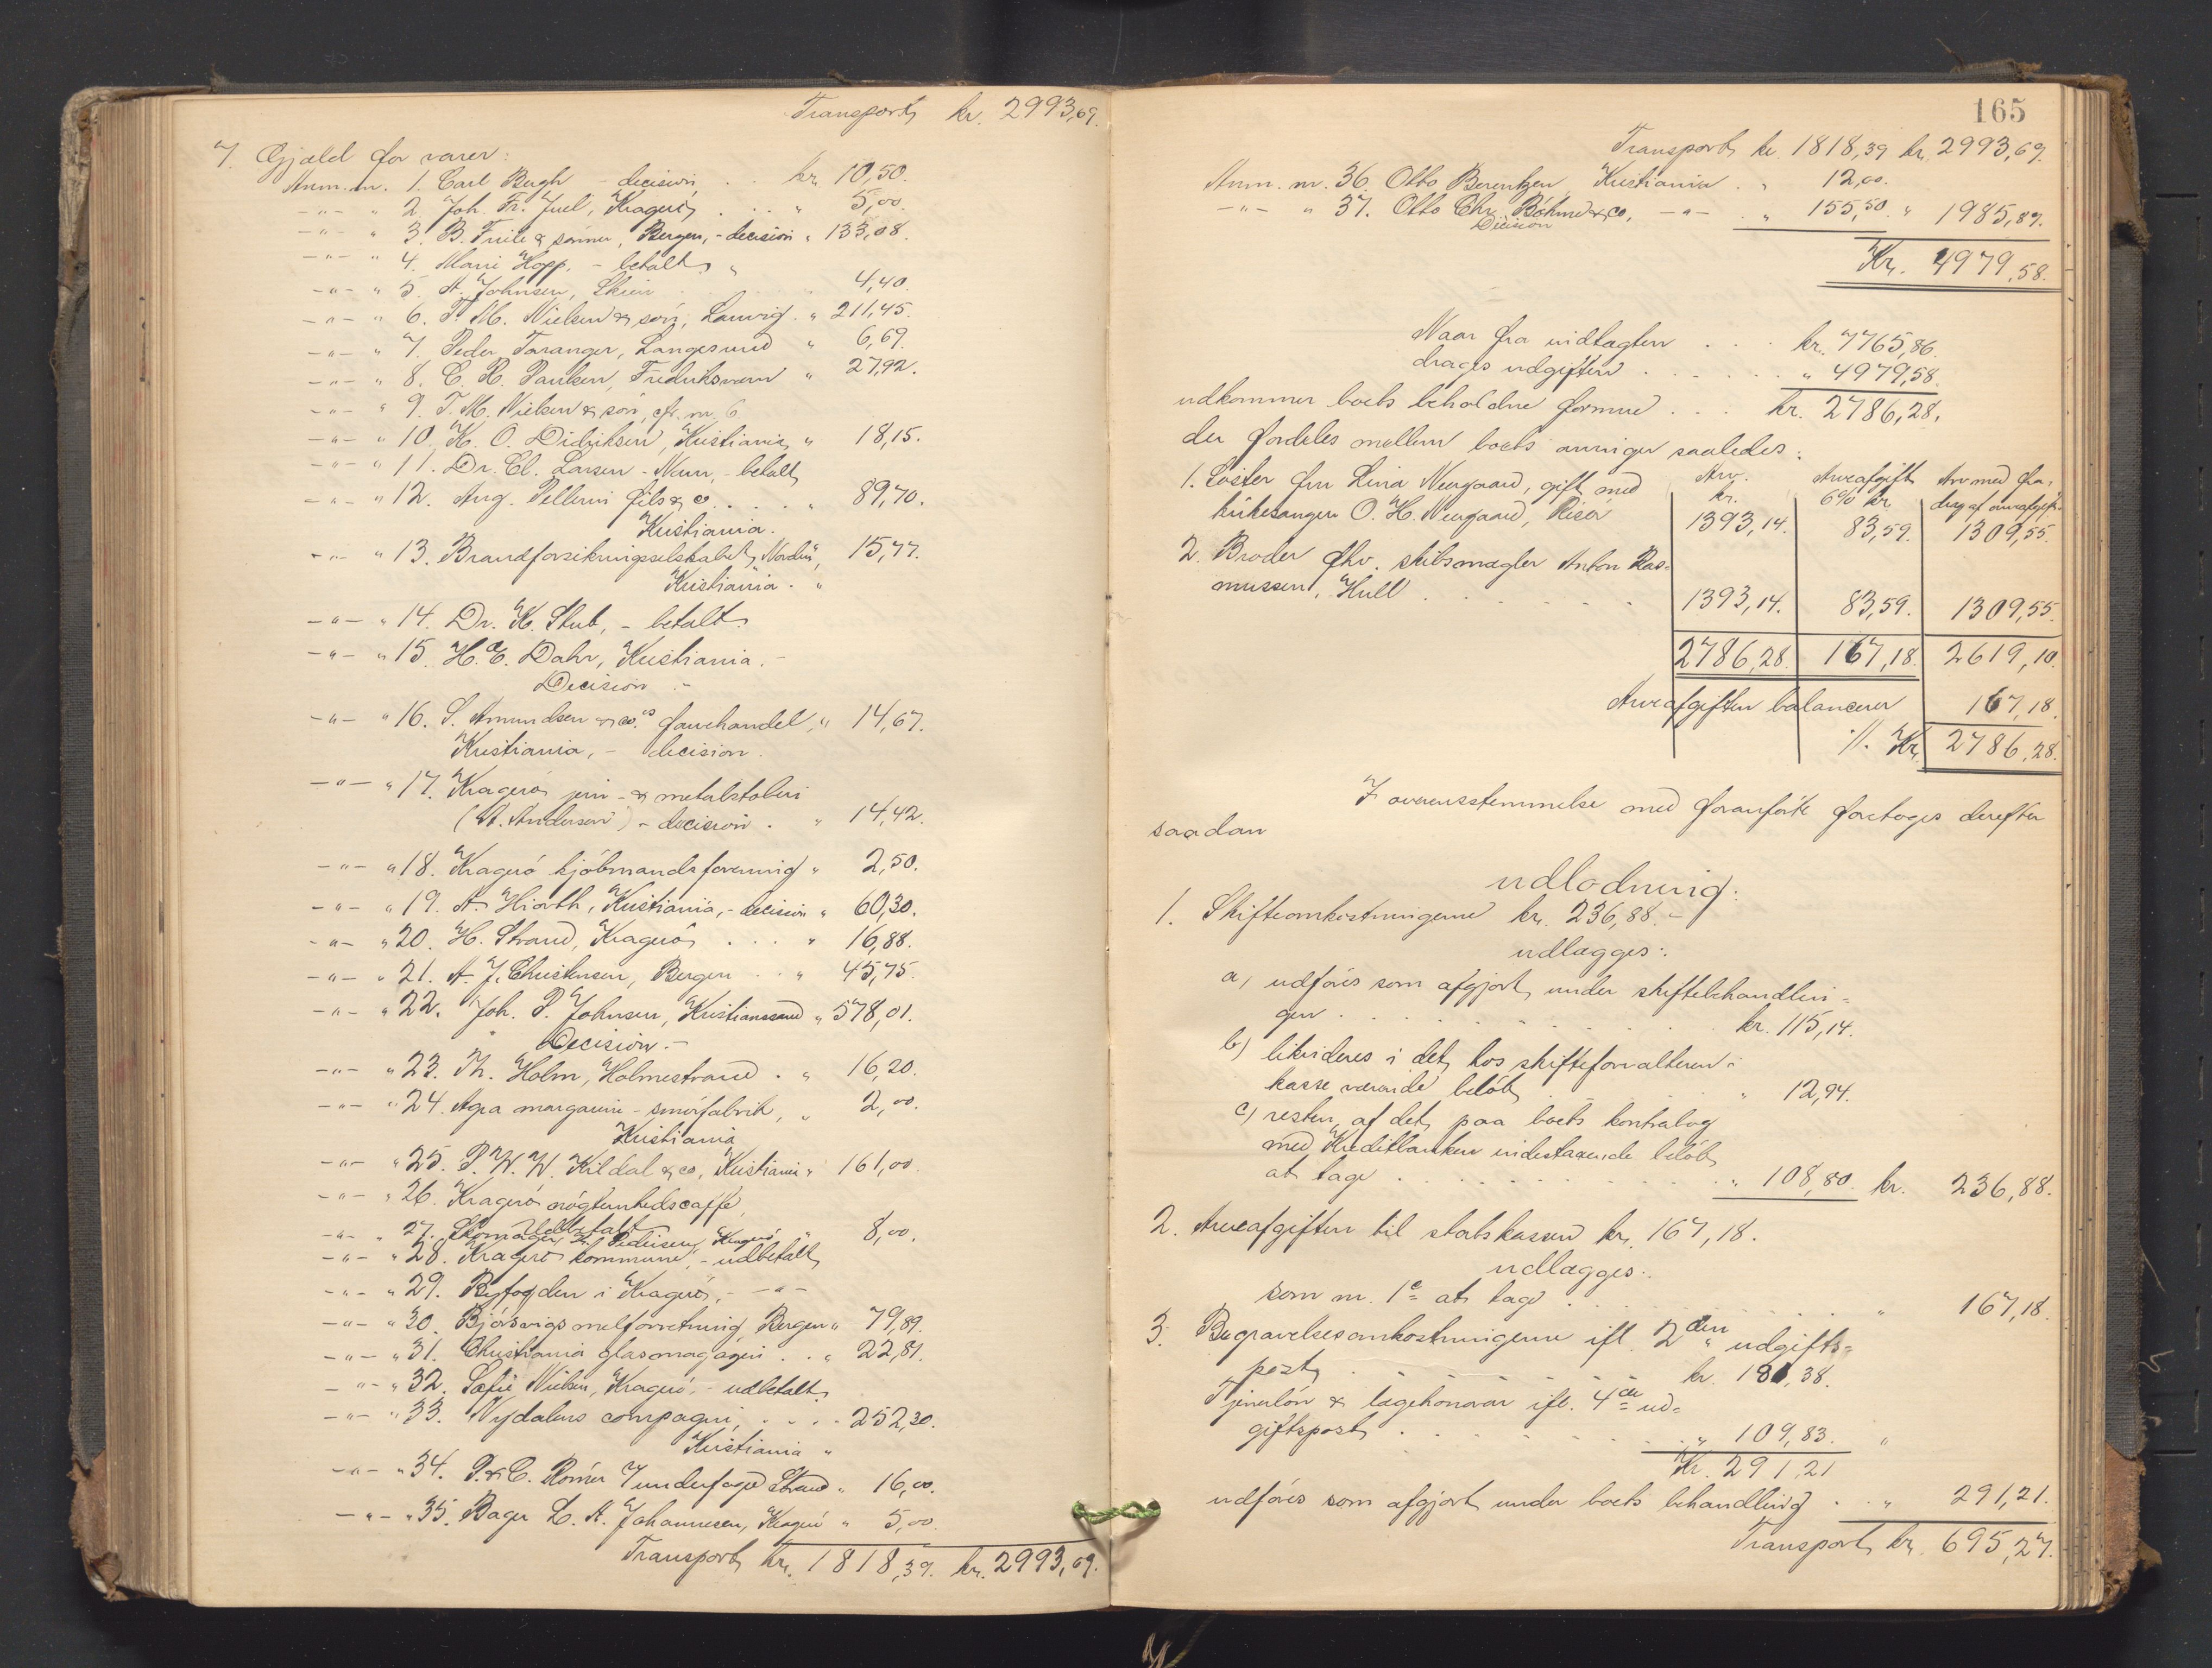 Transport kr. 2993,69.
7. Gjæld for varer:
Anm. nr. 1. Carl Bugh - decision . . kr. 10,50.
-"- " 2. Joh. Fr. Juel, Kragerö, . . . " 5,00.
-"- " 3. B. Friele & sönner, Bergen, - decision " 133,08.
-"- " 4. Marie Hopp, - betalt, "
-"- " 5. A. Johnsen, Skien 4,40.
-"- " 6. T. M. Nielsen & sön, Laurvig. " 211,45.
-"- " 7. Peder Taranger, Langesund " 6,69.
-"- " 8. C. R. Paulsen, Fredriksværn " 27,92.
-"- " 9. T. M. Nielsen & sön, cfr. nr. 6.
-"- " 10. K. O. Didriksen, Kristiania, " 18,15.
-"- " 11. Dr. Cl. Larsen - Namn, - betalt,
-"- " 12. Aug. Pellerin fils & co. . . . . " 89,70.
Kristiania.
-"- " 13. Brandforsikringsselskabet "Norden", 15,77.
Kristiania. "
-"- " 14. Dr. K. Stub, - betalt.
-"- " 15. H. E. Dahr, Kristiania. -
Decision. -
-"- " 16. S. Amundsen & co.s farvehandel, " 14,67.
Kristiania, - decision.
-"- " 17. Kragerö jern- & metalstöberi
(A. Andersen) - decision . " 14,42.
-"- " 18. Kragerö kjöbmandsforening " 2,50.
-"- " 19. A. Hiorth, Kristiania, - decision " 60,30.
-"- " 20. H. Strand, Kragerö, . . . " 16,88.
-"- " 21. A. J. Christensen, Bergen . . " 45,75.
-"- " 22. Joh. P. Johnsen, Kristianssand " 578,01.
Decision. -
-"- " 23. Th. Holm, Holmestrand . " 16,20.
-"- " 24. Agra margarin-smörfabrik, " 2,00.
Kristiania
-"- " 25. P. W. W. Kildal & co, Kristiania " 161,00.
-"- " 26. Kragerö nögternhedscaffe,
Udbetalt
-"- " 27. Skomager Pedersen, Kragerö, " 8,00.
-"- " 28. Kragerö kommune, - udbetalt,
-"- " 29. Byfogden i Kragerö, - -"-
-"- " 30. Björsvigs melforretning, Bergen " 79,89.
-"- " 31. Christiania glasmagasin . . " 22,81.
-"- " 32. Sofie Nielsen, Kragerö, - udbetalt.
-"- " 33. Nydalens compagni, . . . . 252,30.
Kristiania "
-"- " 34. P. & C. Römer Inderfaged Strand " 16,00.
-"- " 35. Bager L. A. Johannesen, Kragerö " 5,00.
Transport, kr. 1818,39. kr. 2993,69.
165
Transport kr. 1818,39 kr. 2993,69.
Anm. nr. 36. Otto Berentzen, Kristiania . " 12,00.
-"- " 37. Otto Chr. Böhme & co, -"- . " 155,50. " 1985,89.
Decision
Kr. 4979,58.
Naar fra indtægten . . . kr. 7765,86.
drages udgiften . . . . . . . " 4979,58.
udkommer boets beholdne formue . . . kr. 2786,28.
der fordeles mellem boets arvinger saaledes:
Arv. Arveafgift Arv med fra-
kr. 6% kr. drag af arveafgift.
1. Söster fru Lina Neergaard, gift med
kirkesanger O. H. Neergaard, Risör 1393,14. 83,59. 1309,55.
2. Broder fhv. skibsmægler Anton Ras-
mussen, Hull . . . . . . . 1393,14. 83,59. 1309,55.
2786,28. 167,18. 2619,10.
Arveafgiften balancerer 167,18.
//. Kr. 2786,28.
I overensstemmelse med foranförte foretoges derefter
saadan
udlodning:
1. Skifteomkostningerne kr. 236,88. -
udlægges:
a) udföres som afgjort, under skiftebehandlin-
gen . . . . . . . . . . kr. 115,14.
b) likvideres i det, hos skifteforvalteren i
kasse værende belöb, . . . . . " 12,94.
c) resten, af det, paa boets kontrabog
med Kreditbanken indestaaende belöb,
at tage . . . . . . . . . . . . " 108,80. kr. 236,88.
2. Arveafgiften til statskassen kr. 167,18.
udlægges:
som nr. 1c at tage . . . . . . . . . " 167,18.
3. Begravelsesomkostningerne ifl. 2den udgifts-
post, . . . . . . . . . kr. 181,38.
Tjenerlön & lægehonorar ifl. 4de ud-
giftspost, . . . . . . . . . " 109,83. "
Kr. 291,21
udföres som afgjort under boets behandling . . " 291,21.
Transport, kr. 695,27.